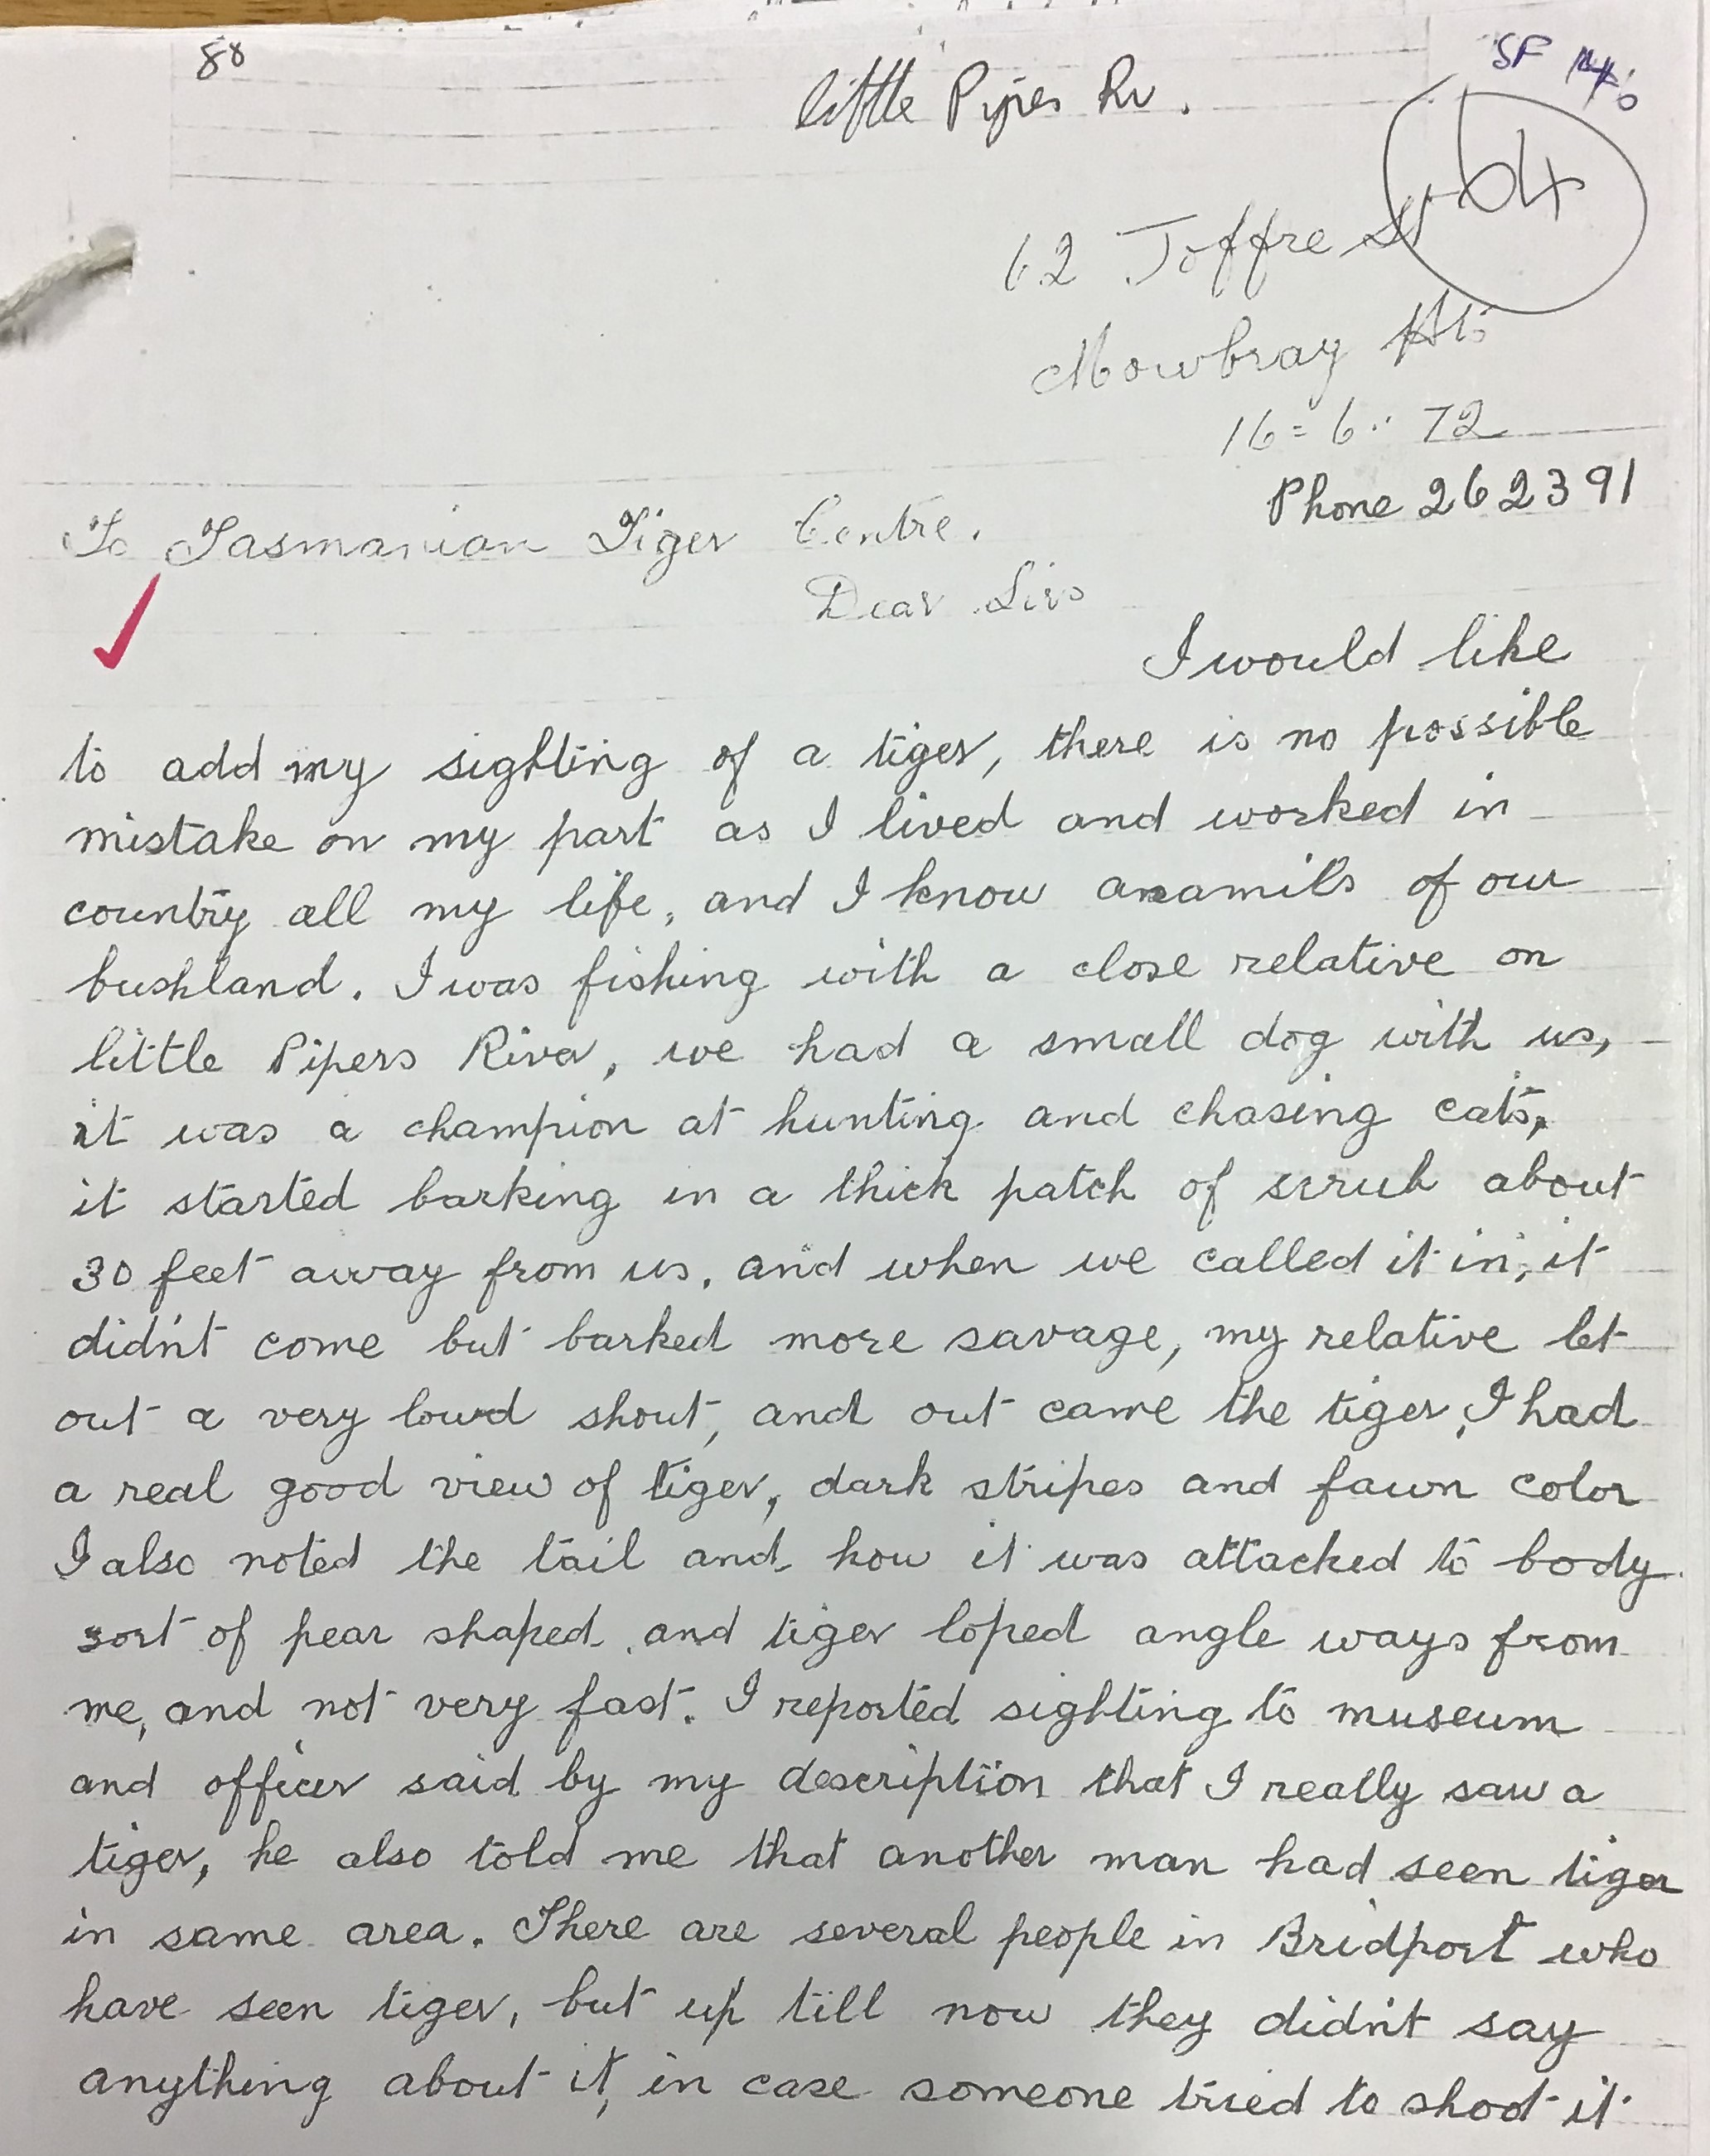 88
little Pipers Rv.
SF
64
62 Joffre St
Mowbray Hts
16=6..72
Phone 262391
To Tasmanian Tiger Centre.
Dear Sirs
I would like
to add my sighting of a tiger, there is no possible
mistake on my part as I lived and worked in
country all my life, and I know anamils of our
bushland. I was fishing with a close relative on
little Pipers River, we had a small dog with us,
it was a champion at hunting and chasing cats,
it started barking in a thick patch of scrub about
30 feet away from us, and when we called it in, it
didn't come but barked more savage, my relative let
out a very loud shout, and out came the tiger, I had
a real good view of tiger, dark stripes and fawn color
I also noted the tail and how it was attacked to body
sort of pear shaped, and tiger loped angle ways from
me, and not very fast. I reported sighting to museum
and officer said by my description that I really saw a
tiger, he also told me that another man had seen tiger
in same area. There are several people in Bridport who
have seen tiger, but up till now they didn't say
anything about it, in case someone tried to shoot it